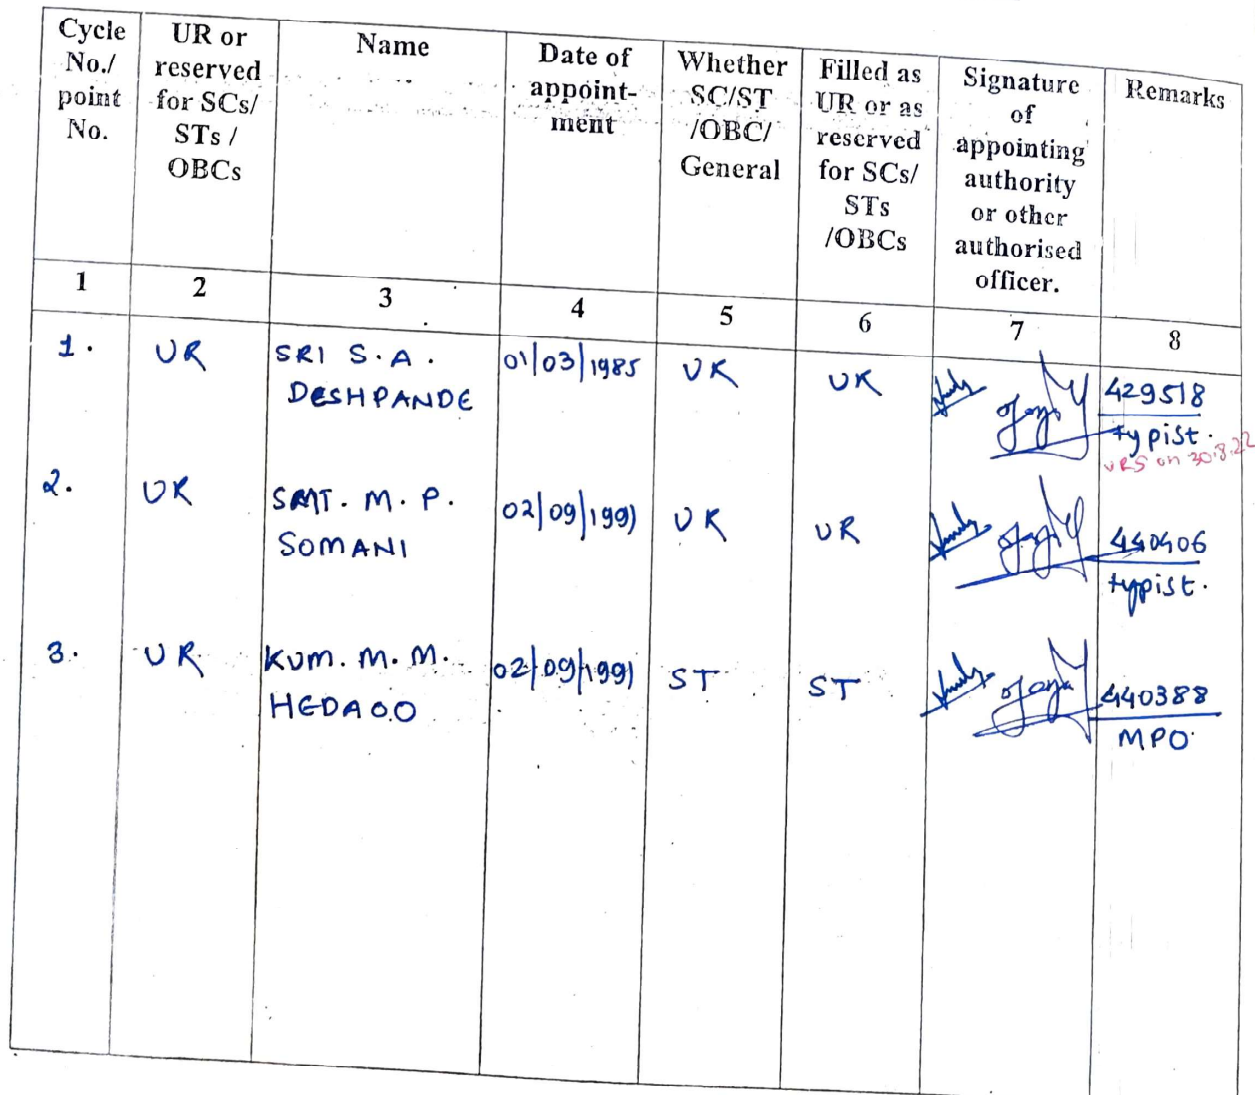 Cycle No./ point No.
UR or reserved for SCs/ STs / OBCs
Name
Date of appoint-ment
Whether SC/ST /OBC/ General
Filled as UR or as reserved for SCs/ STs /OBCs
Signature of appointing authority or other authorised officer.
Remarks
1 2 3 4 5 6 7 8
1. UR SRI S. A. 01/03/1985 UR UR 429518
DESHPANDE typist.
VRS on 30.8.22
2. UR SMT. M. P. 02/09/1991 UR UR 440406
SOMANI typist.
3. UR KUM. M. M. 02/09/1991 ST ST 440388
HEDAOO MPO